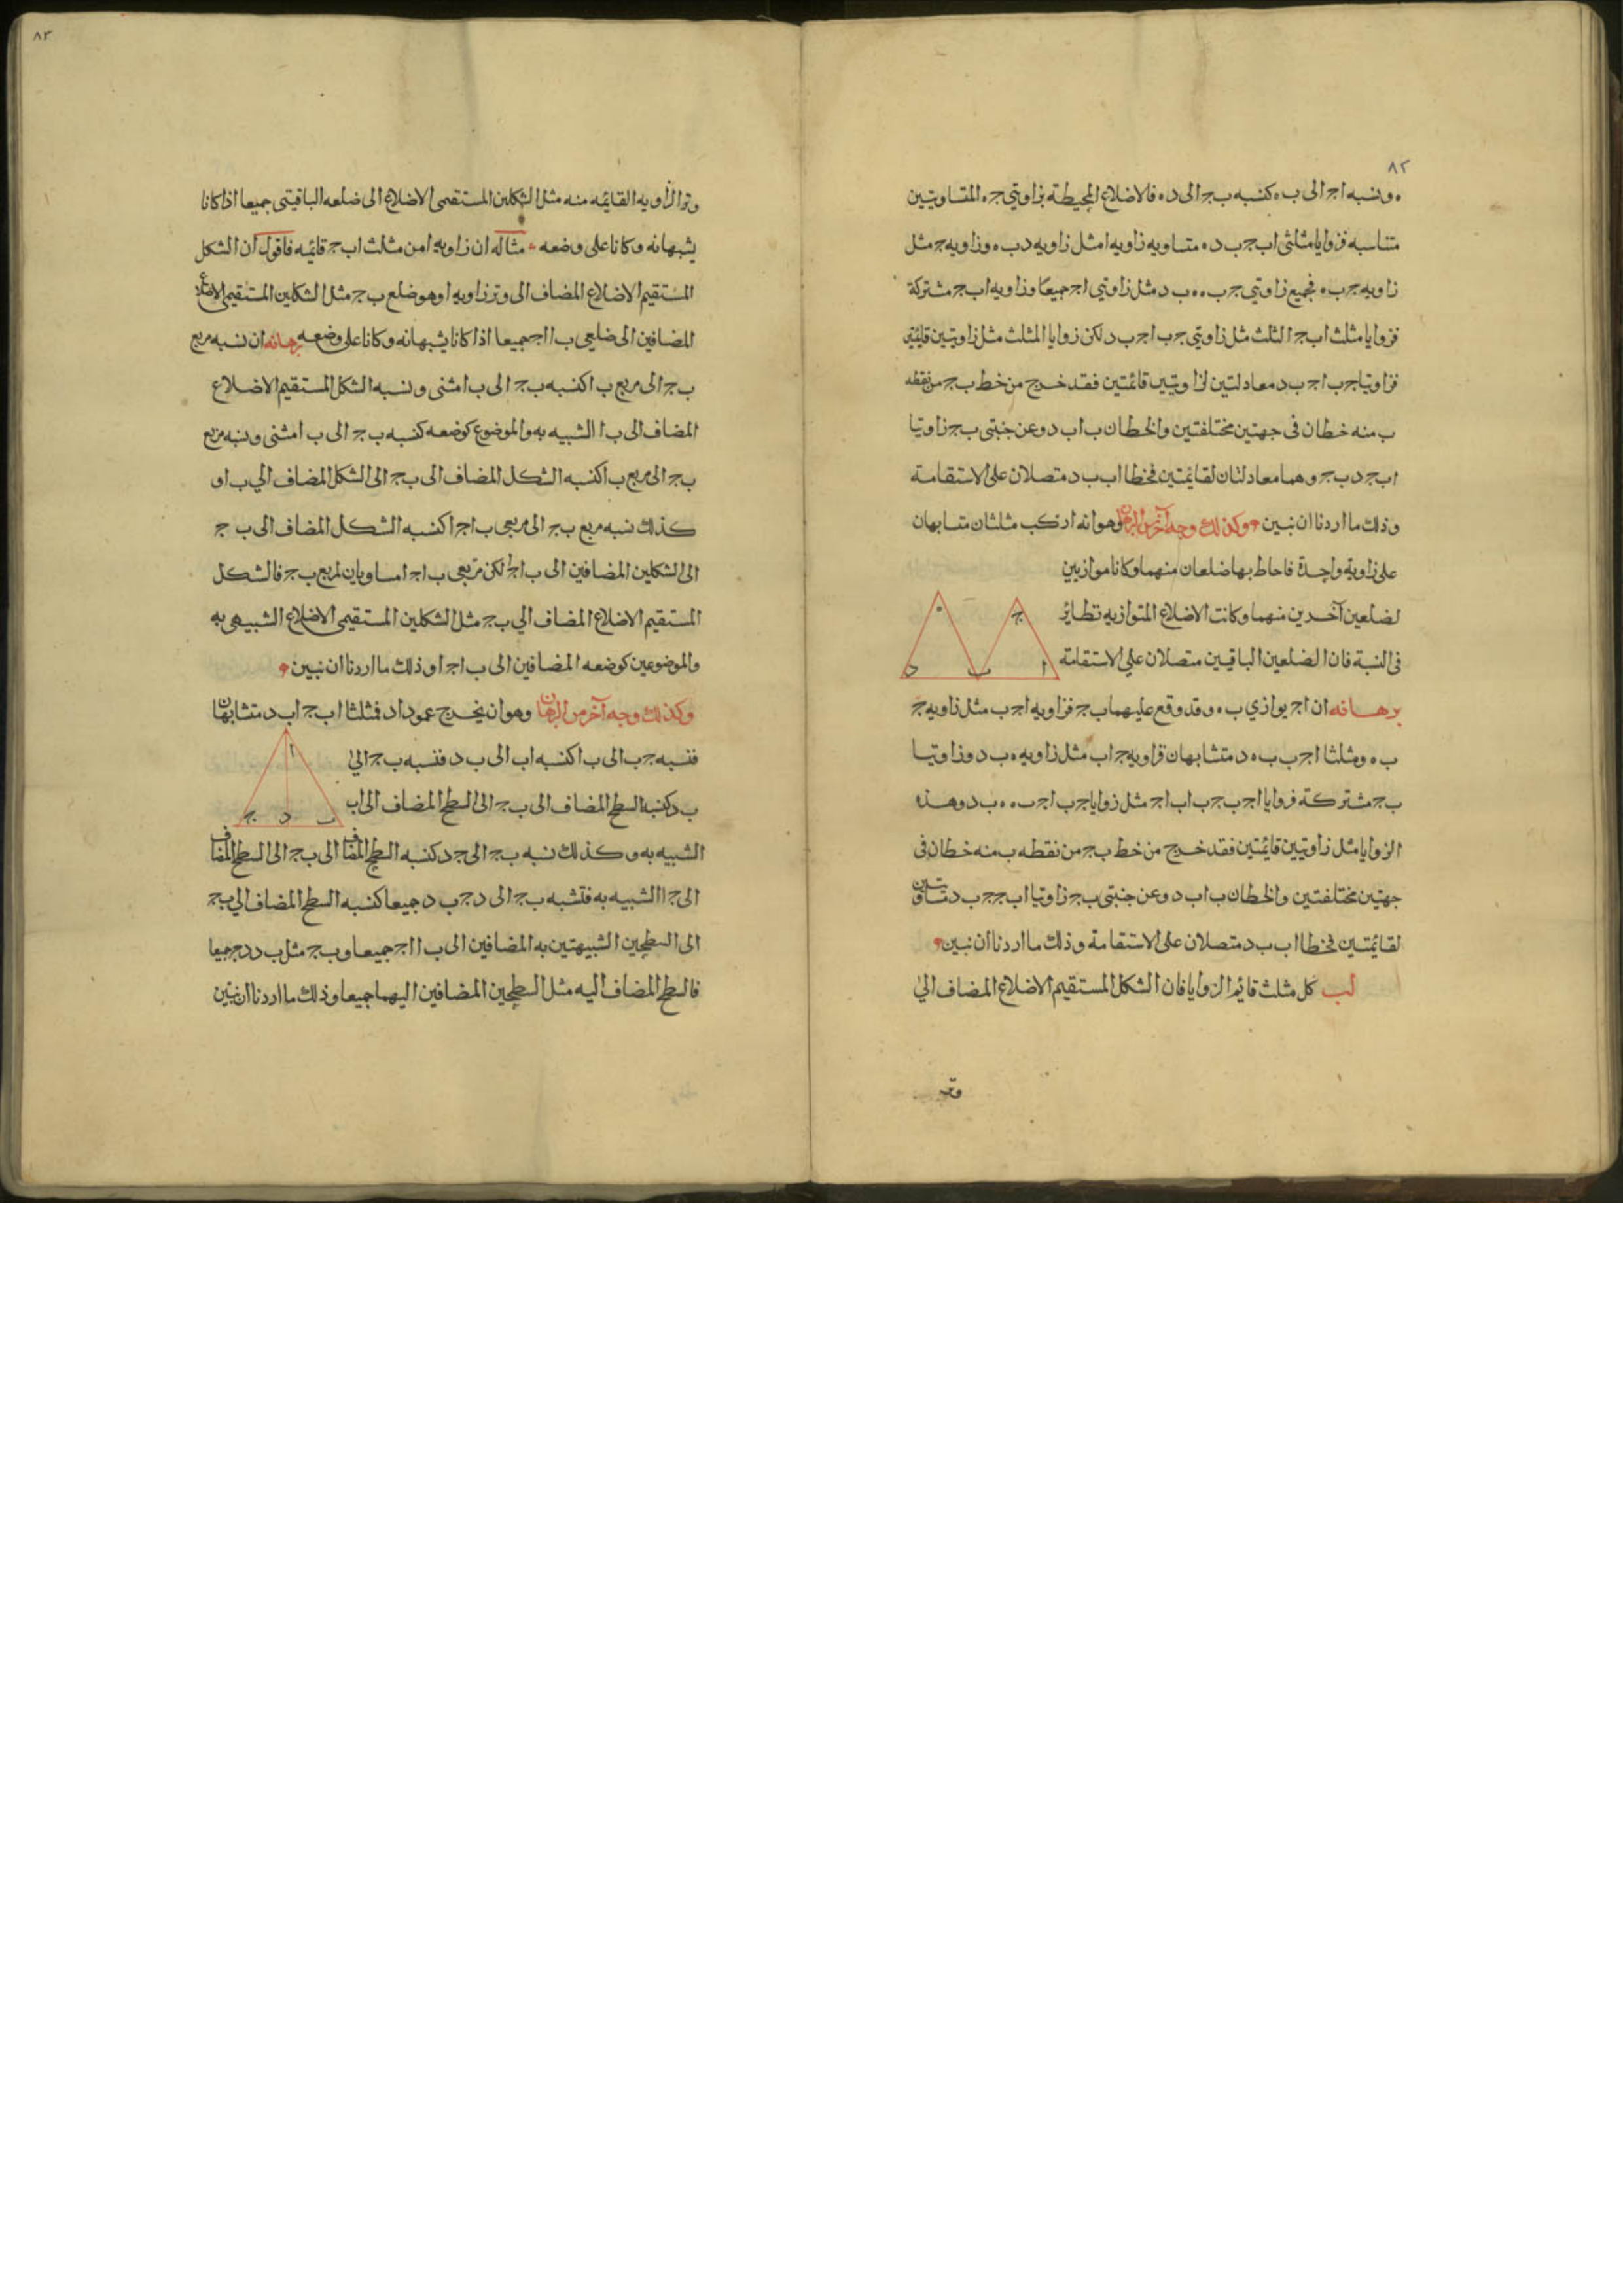 ٨٢
ه ونسبه اج الى ب ه كنسبه ب ج الى د ه فالاضلاع المحيطة بزاويتي ج ه المتساويتين
متناسبه فزوايا مثلثى اب ج ب د ه متساويه زاويه ا مثل زاويه د ب ه وزاويه ج مثل
زاويه ج ب ه فجميع زاويتي ج ب ه ه ب د مثل زاويتي ا ج جميعا وزاويه اب ج مشتركة
فزوايا مثلث اب ج الثلث مثل زاويتي ج ب ا ج ب د لكن زوايا المثلث مثل زاويتين قايمتين
فزاويتا ج ب ا ج ب د معادلتين لزاويتين قائمتين فقد خرج من خط ب ج من نقطه
ب منه خطان فى جهتين مختلفتين والخطان ب ا ب د وعن جنبتى ب ج زاويتا
اب ج د ب ج وهما معادلتان لقايمتين فخطا اب ب د متصلان على الاستقامة
وذلك ما اردنا ان نبين وكذلك وجه آخر من البرهان وهو انه ان ركب مثلثان متشابهان
على زاوية واحدة فاحاط بها ضلعان منهما وكانا موازيين
لضلعين آخرين منهما وكانت الاضلاع المتوازيه نظاير
فى النسبة فان الضلعين الباقيين متصلان علي الاستقامة
ج ه ا ب د
برهانه ان ا ج يوازي ب ه وقد وقع عليهما ب ج فزاويه ا ج ب مثل زاويه ج
ب ه ومثلثا ا ج ب ب ه د متشابهان فزاويه ج ا ب مثل زاويه ه ب د وزاويتا
ب ج مشتركة فزوايا ا ج ب ج ب ا ب ا ج مثل زوايا ج ب ا ج ب ه ه ب د وهذه
الزوايا مثل زاويتين قايمتين فقد خرج من خط ب ج من نقطه ب منه خطان فى
جهتين مختلفتين والخطان ب ا ب د وعن جنبتى ب ج زاويتا اب ج ج ب د متساويتين
لقايمتين فخطا اب ب د متصلان على الاستقامة وذلك ما اردنا ان نبين
لب كل مثلث قايم الزوايا فان الشكل المستقيم الاضلاع المضاف الي
وتر
٨٣
وتر الزاويه القايمه منه مثل الشكلين المستقيمى الاضلاع الى ضلعه الباقيتى جميعا اذا كانا
يشبهانه وكانا على وضعه مثاله ان زاويه ا من مثلث اب ج قايمه فاقول ان الشكل
المستقيم الاضلاع المضاف الى وتر زاويه ا وهو ضلع ب ج مثل الشكلين المستقيمى الاضلاع
المضافين الى ضلعى ب ا ا ج جميعا اذا كانا يشبهانه وكانا على وضعه برهانه ان نسبه مربع
ب ج الى مربع ب ا كنسبه ب ج الى ب ا مثنى ونسبه الشكل المستقيم الاضلاع
المضاف الى ب ا الشبيه به والموضوع كوضعه كنسبه ب ج الى ب ا مثنى ونسبه مربع
ب ج الى مربع ب ا كنسبه الشكل المضاف الى ب ج الى الشكل المضاف الي ب ا و
كذلك نسبه مربع ب ج الى مربعى ب ا ج ا كنسبه الشكل المضاف الى ب ج
الى الشكلين المضافين الى ب ا ج ا لكن مربعى ب ا ج ا مساويان لمربع ب ج فالشكل
المستقيم الاضلاع المضاف الي ب ج مثل الشكلين المستقيمى الاضلاع الشبيهى به
والموضوعين كوضعه المضافين الى ب ا ج ا وذلك ما اردنا ان نبين
وكذلك وجه آخر من البرهان وهو ان يخرج عمود ا د فمثلثا اب ج اب د متشابهان
فنسبه ج ب الى ب ا كنسبه اب الى ب د فنسبه ب ج الي
ب د كنسبه السطح المضاف الى ب ج الى السطح المضاف الى اب
ا ب د ج
الشبيه به وكذلك نسبه ب ج الى ج د كنسبه السطح المضاف الى ب ج الى السطح المضاف
الى ج ا الشبيه به فنسبه ب ج الى د ج ب د جميعا كنسبه السطح المضاف الي ب ج
الى السطحين الشبيهتين به المضافين الى ب ا ا ج جميعا و ب ج مثل ب د د ج جميعا
فالسطح المضاف اليه مثل السطحين المضافين اليهما جميعا وذلك ما اردنا ان نبين